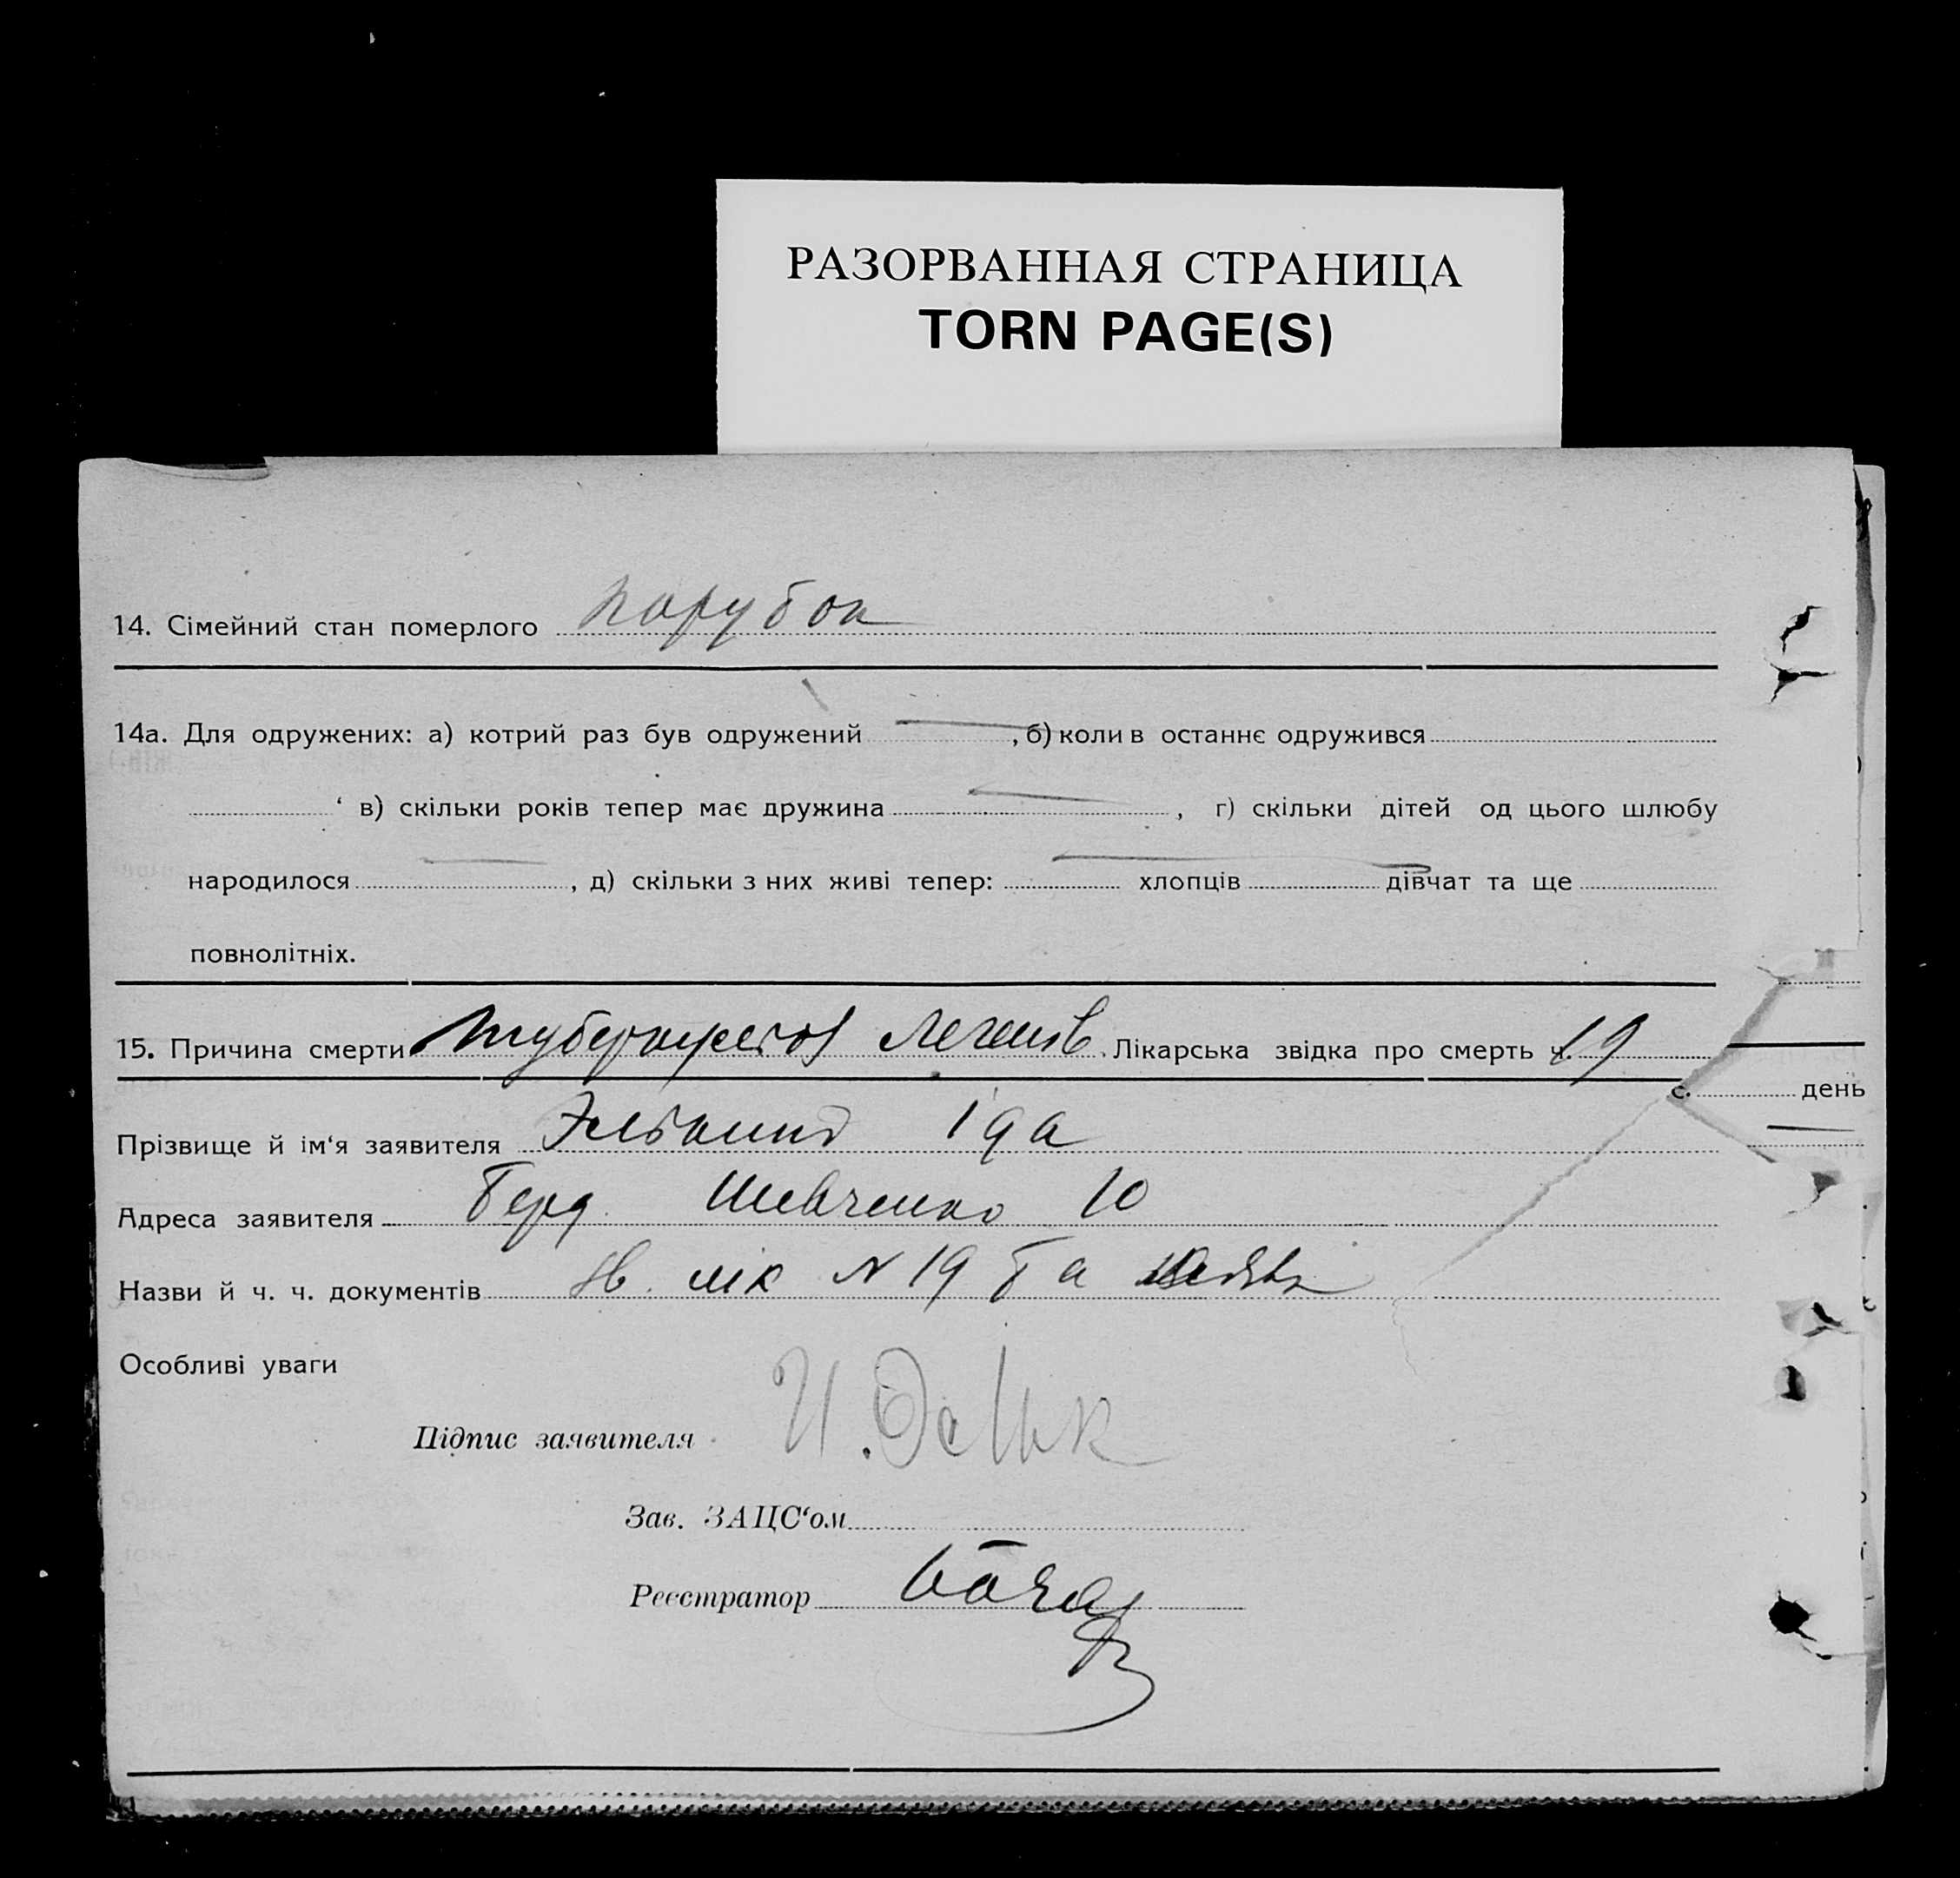 РАЗОРВАННАЯ СТРАНИЦА
TORN PAGE(S)
14. Сімейний стан померлого парубок
14а. Для одружених: а) котрий раз був одружений — , б) коли в останнє одружився
в) скільки років тепер має дружина — , г) скільки дітей од цього шлюбу
народилося — , д) скільки з них живі тепер: — хлопців — дівчат та ще
повнолітніх.
15. Причина смерти туберкульоз легенів. Лікарська звідка про смерть ч. 19
с. день
Прізвище й ім‘я заявителя Элькинд Іда
Адреса заявителя Берд. Шевченко 10
Назви й ч. ч. документів лік N 19 та
Особливі уваги
Підпис заявителя И. Эльк
Зав. ЗАЦС‘ом
Реєстратор